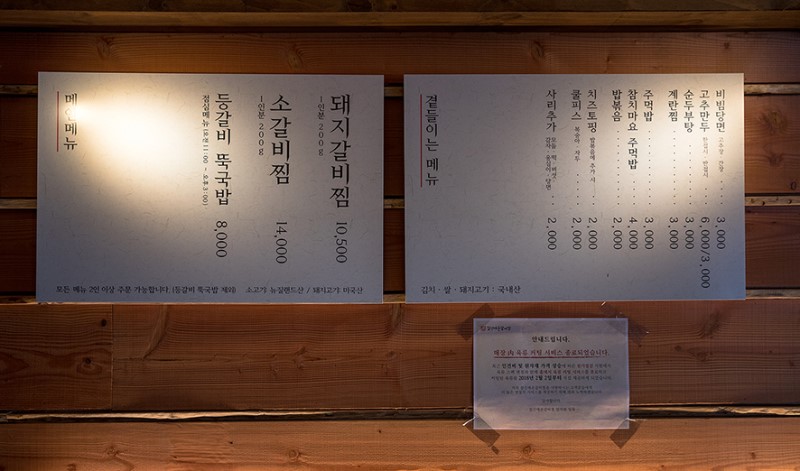 메인메뉴
돼지갈비찜 10,500
1인분 200g
소갈비찜 14,000
1인분 200g
등갈비 뚝국밥 8,000
점심메뉴 (오전 11:00 ~ 오후 3:00)
모든 메뉴 2인 이상 주문 가능합니다. (등갈비 뚝국밥 제외) 소고기: 뉴질랜드산 / 돼지고기: 미국산
곁들이는 메뉴
비빔당면 고추장 · 간장 3,000
고추만두 한접시 · 반접시 6,000/3,000
순두부탕 3,000
계란찜 3,000
주먹밥 3,000
참치마요 주먹밥 4,000
밥볶음 2,000
치즈토핑 밥볶음에 추가 시 2,000
쿨피스 복숭아 · 자두 2,000
사리추가 2,000
김치 · 쌀 · 돼지고기 : 국내산
안내드립니다.
매장 內 육류 커팅 서비스 종료되었습니다.